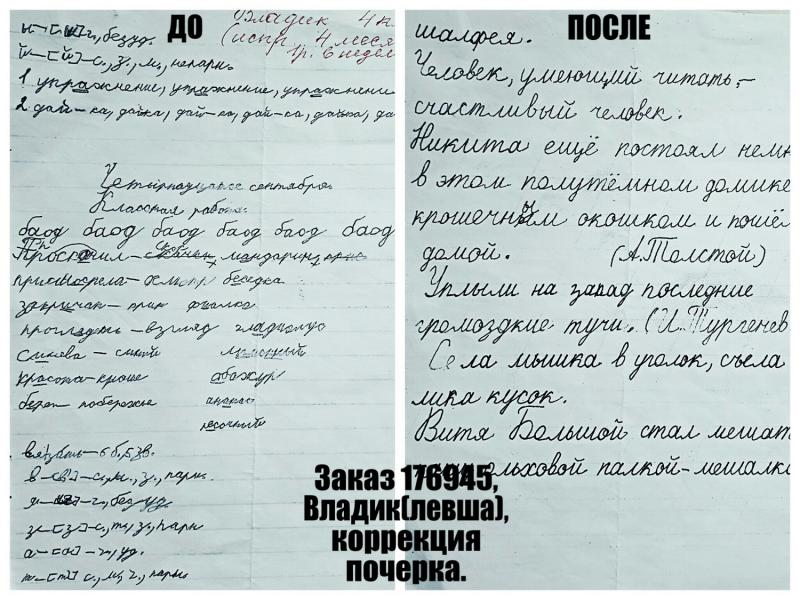 ДО
Владик 4 кл
(испр. 4 меся
1р. 6 недел
и–[и] г., безуд.
й–[й'] с., з., м., непарн.
1 упражнение, упражнение, упражнени
2 дай-ка, дайка, дай-ка, дай-ка, дайка, да
Четырнадцатое сентября.
Классная работа.
баод баод баод баод баод баод
мандарин,
беседка
закричал – крик фиалка
– взгляд гладиолус
Синева – синий лимонный
красота – краше абажур
берег – побережье ананас
песочный
вязать – 6 б., 5 зв.
в–[в'] – с., м., з., парн.
з–[з] – с., т., з., парн
а–[а] – г., уд.
т–[т'] с., м., г., парн.
ПОСЛЕ
шалфея.
Человек, умеющий читать, –
счастливый человек.
Никита ещё постоял немн
в этом полутёмном домике
крошечным окошком и пошё
домой. (А.Толстой)
Уплыли на запад последние
громоздкие тучи. (И.Тургенев
Села мышка в уголок, съела
лика кусок.
Витя Большой стал мешат
ольховой палкой-мешалко
Заказ 176945,
Владик(левша),
коррекция
почерка.